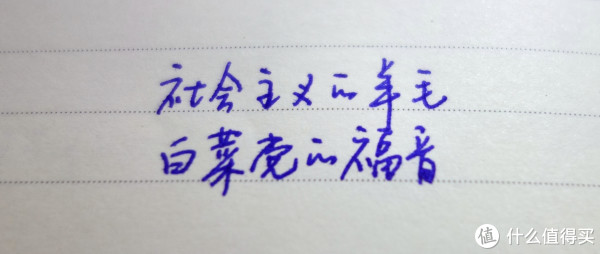 社会主义的羊毛
白菜党的福音
值 什么值得买